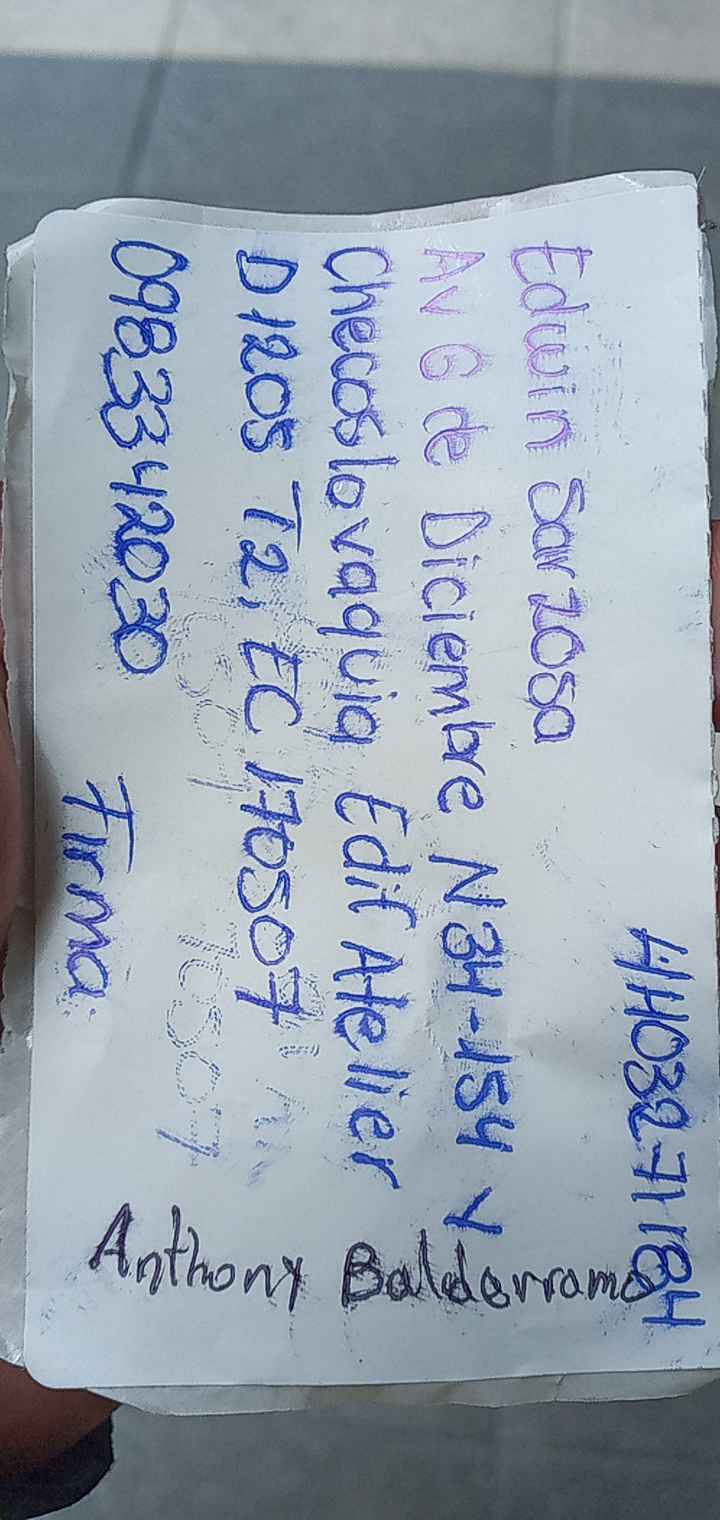 44103271184
Edwin Sarzosa
Av 6 de Diciembre N34-154 y
Checoslovaquia Edif Atelier
D1205 T2, EC 170507
0983342030
Firma:
Anthony Balderrama